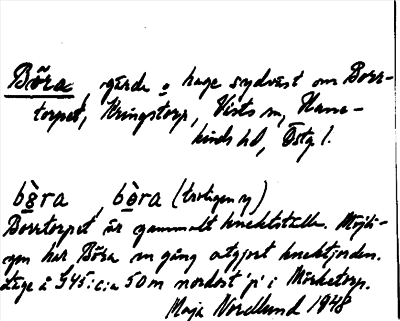 Böra, gärde o hage sydväst om Borr-
torpet, Kringstorp, Vists sn, Hane-
kinds hd, Östg l.
bö̀ra, bö̀ra (troligen y)
Borrtorpet är gammalt knektställe. Möjli-
gen har Böra en gång utgjort knektjorden.
Läge å G45: c:a 50m nordost 'p' i Mörketorp.
Maja Nordlund 1948